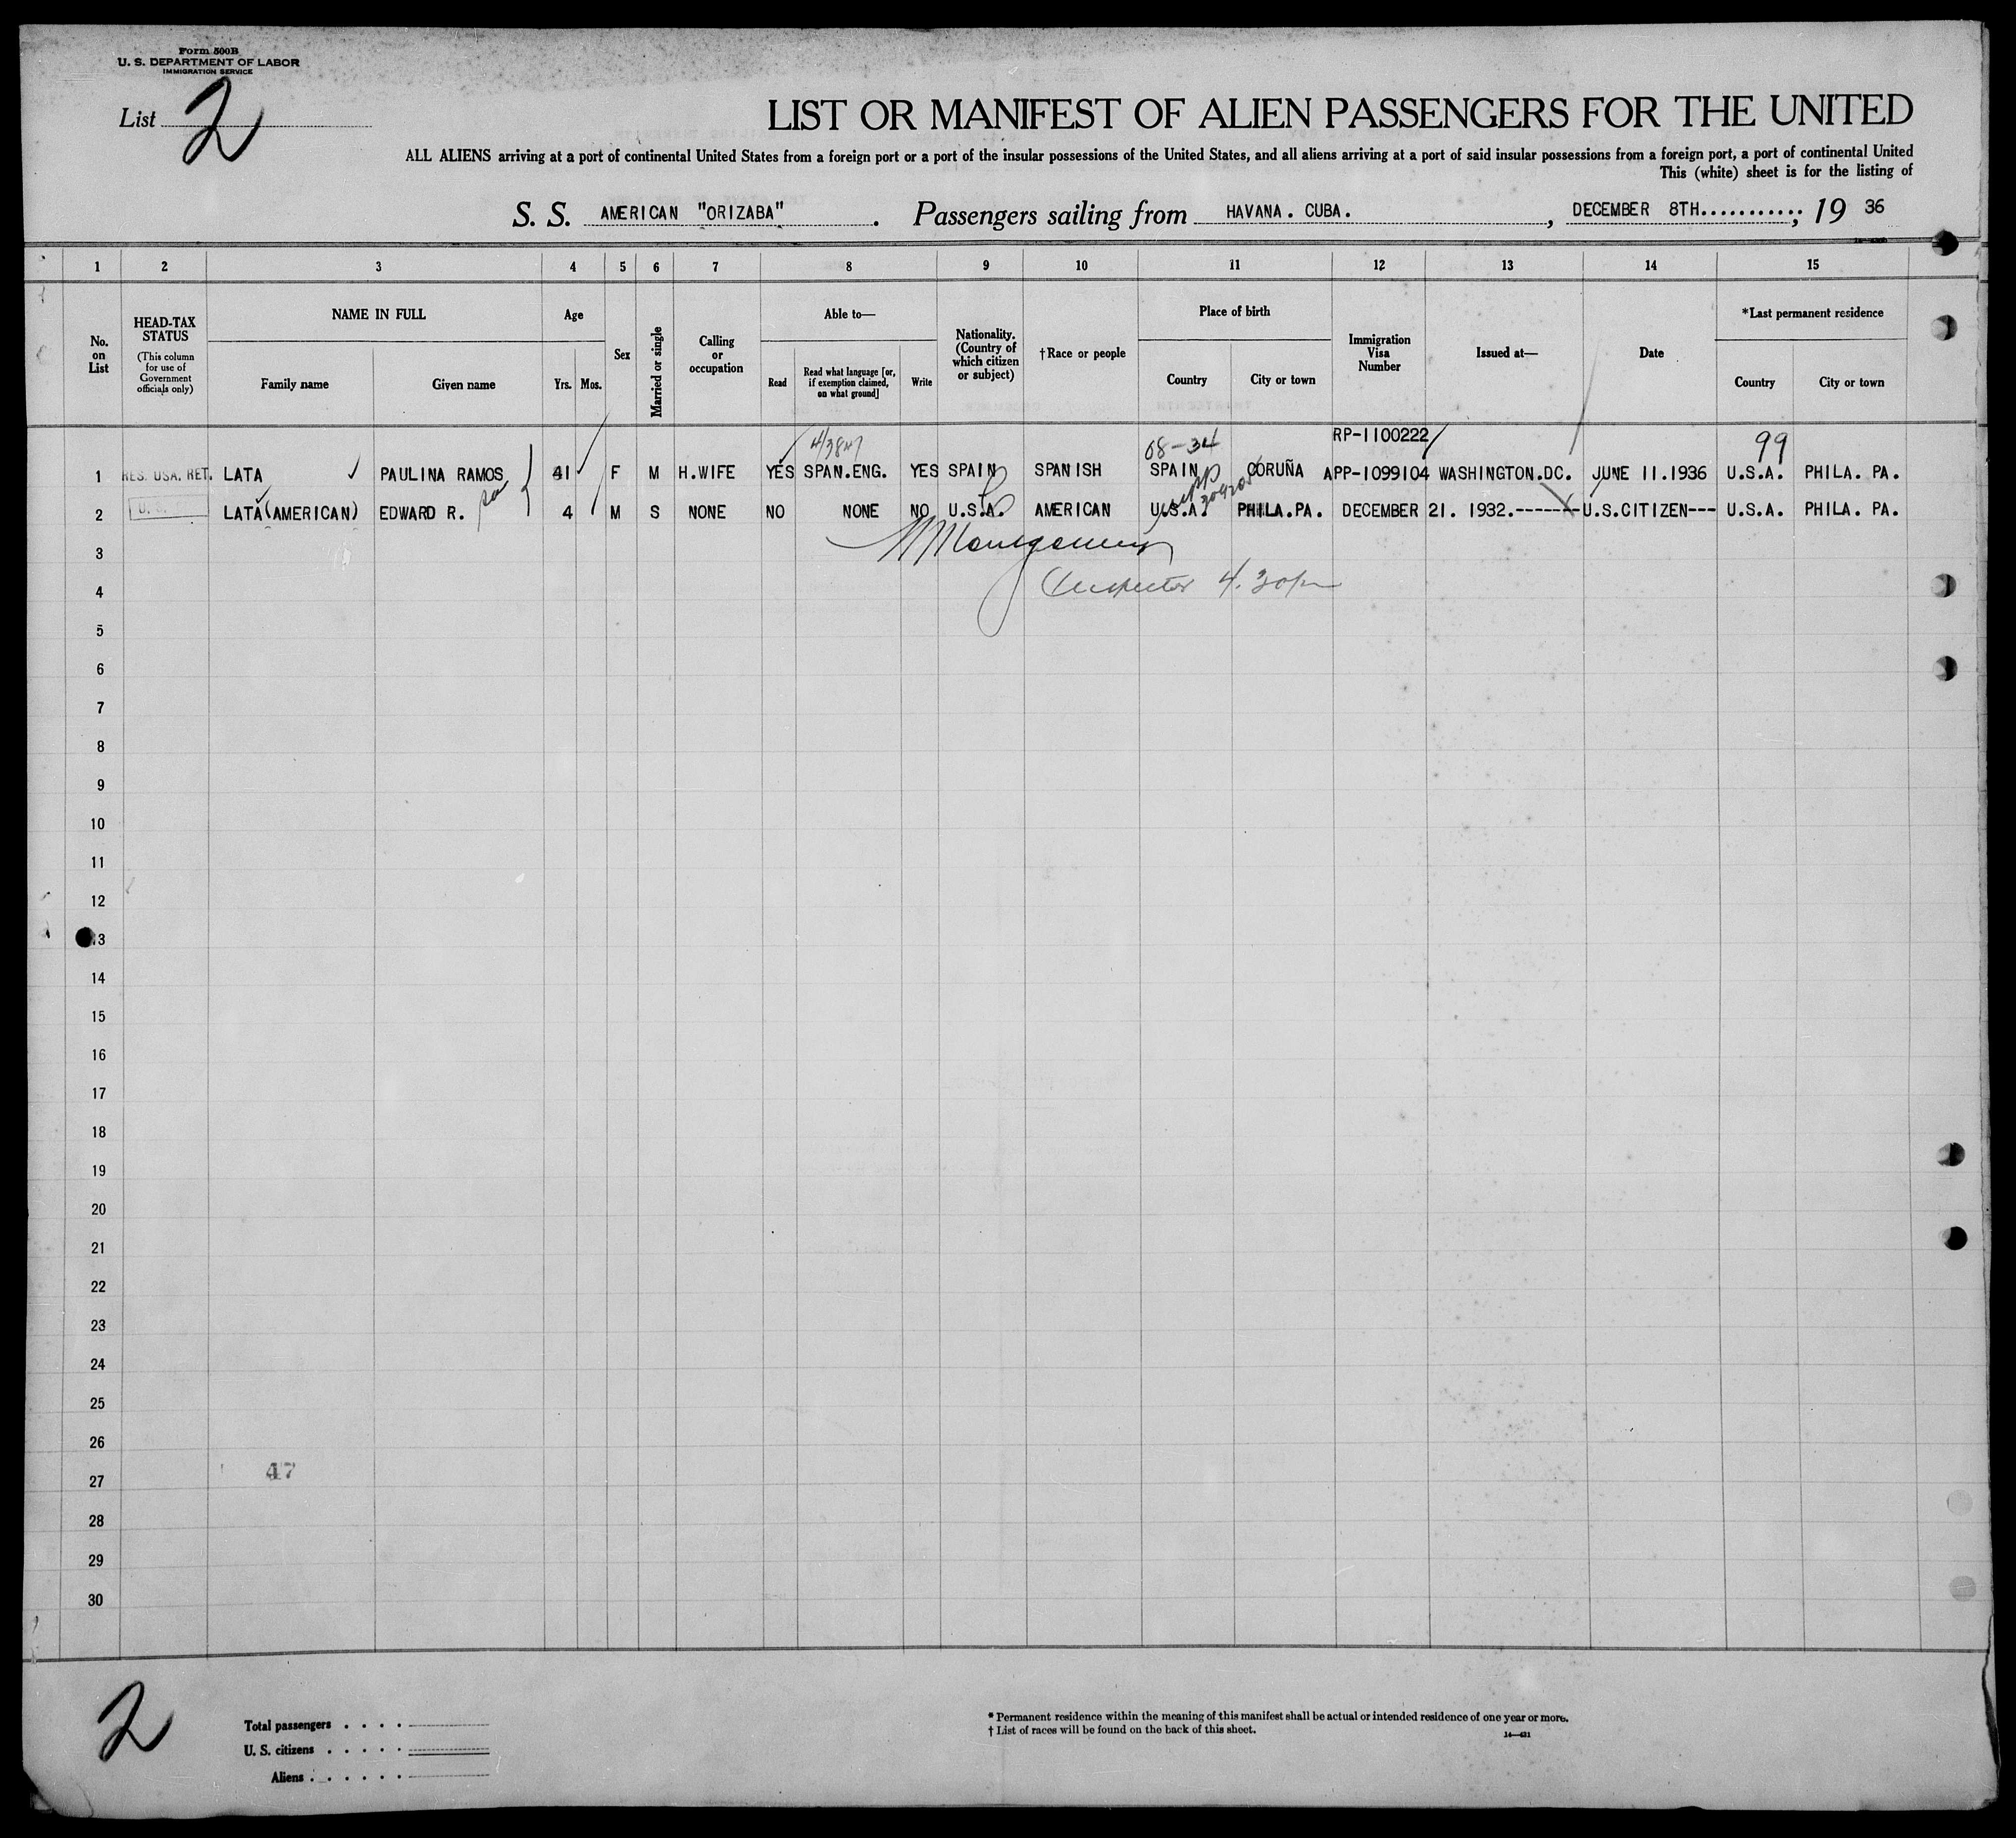 Form 500B
U. S. DEPARTMENT OF LABOR
IMMIGRATION SERVICE
List 2
LIST OR MANIFEST OF ALIEN PASSENGERS FOR THE UNITED
ALL ALIENS arriving at a port of continental United States from a foreign port or a port of the insular possessions of the United States, and all aliens arriving at a port of said insular possessions from a foreign port, a port of continental United
This (white) sheet is for the listing of
S. S. AMERICAN "ORIZABA". Passengers sailing from HAVANA. CUBA., DECEMBER 8TH..........., 19 36
1 2 3 4 5 6 7 8 9 10 11 12 13 14 15
No. on List
HEAD-TAX STATUS
(This column for use of Government officials only)
NAME IN FULL
Family name Given name
Age
Yrs. Mos.
Sex
Married or single
Calling or occupation
Able to—
Read
Read what language [or, if exemption claimed, on what ground]
Write
Nationality. (Country of which citizen or subject)
†Race or people
Place of birth
Country City or town
Immigration Visa Number
Issued at—
Date
*Last permanent residence
Country City or town
08-34 RP-1100222 99
1 RES. USA. RET. LATA PAULINA RAMOS 41 F M H.WIFE YES SPAN.ENG. YES SPAIN SPANISH SPAIN CORUÑA APP-1099104 WASHINGTON.DC. JUNE 11.1936 U.S.A. PHILA. PA.
2 LATA(AMERICAN) EDWARD R. 4 M S NONE NO NONE NO U.S.A. AMERICAN U.S.A. PHILA.PA. DECEMBER 21. 1932.-------U.S.CITIZEN--- U.S.A. PHILA. PA.
3 Montgomery
4 Inspector 4.30pm
5
6
7
8
9
10
11
12
13
14
15
16
17
18
19
20
21
22
23
24
25
26
47
27
28
29
30
2
Total passengers . . . .
U. S. citizens . . . . .
Aliens . . . . . .
* Permanent residence within the meaning of this manifest shall be actual or intended residence of one year or more.
† List of races will be found on the back of this sheet.